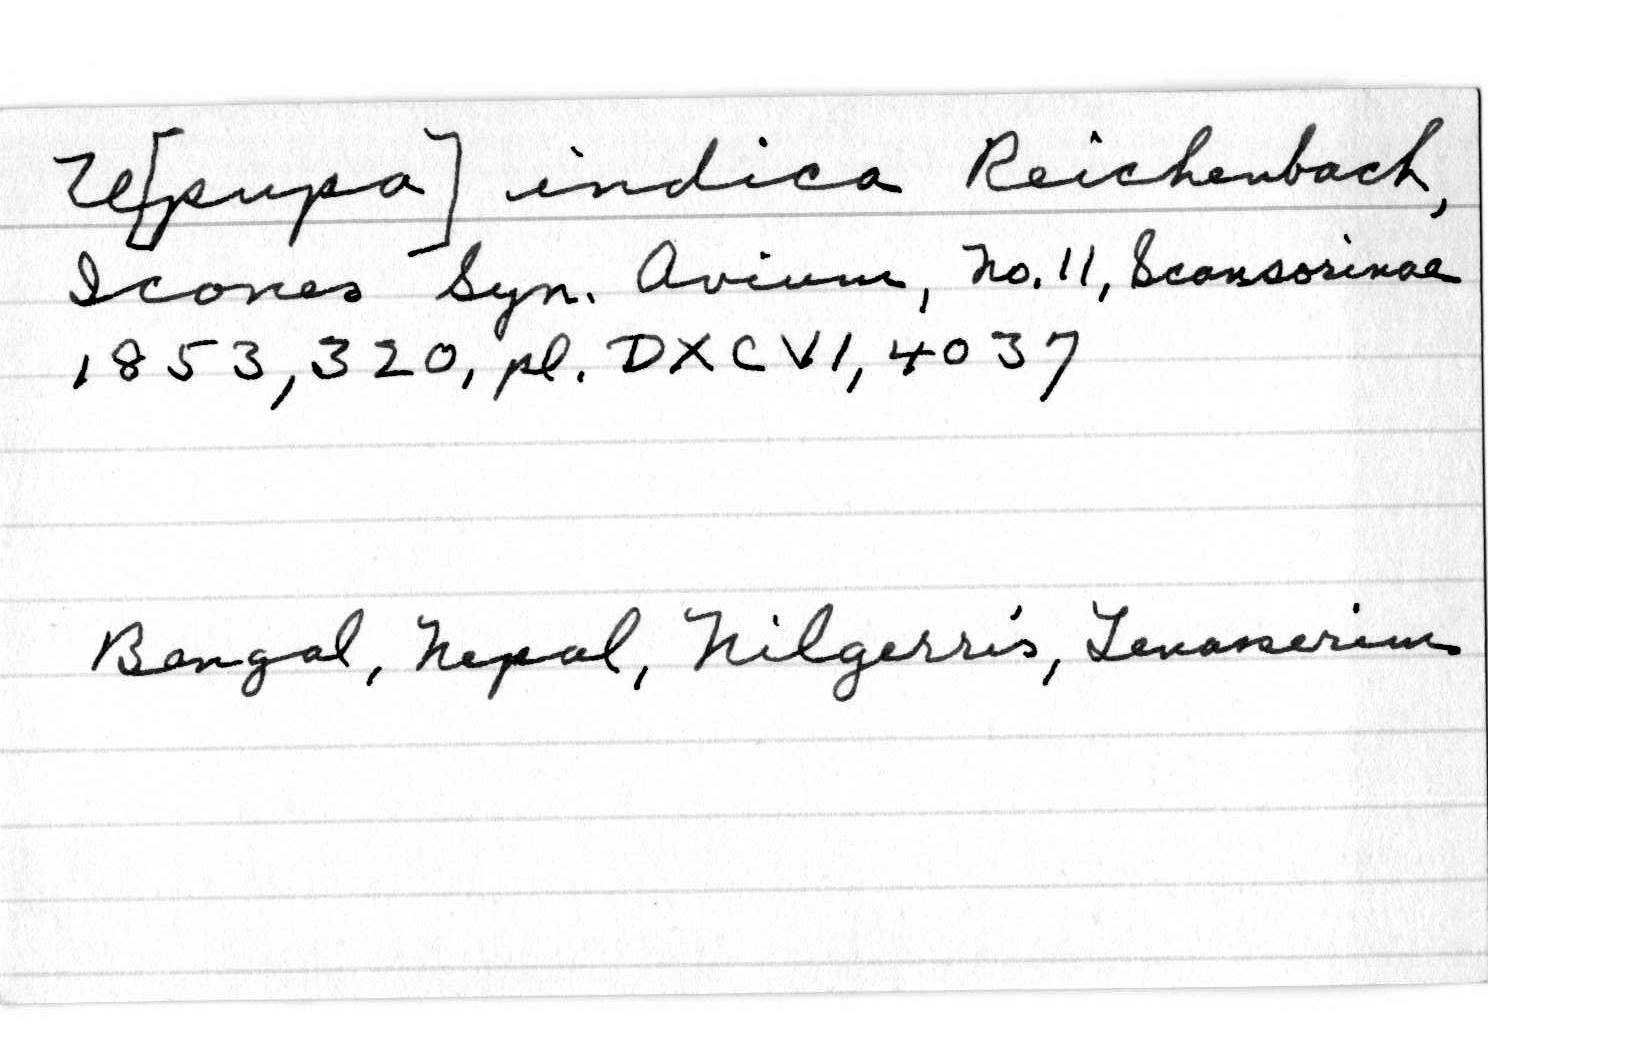 U[pupa] indica Reichenbach,
Icones Syn. Avium, No. 11, Scansorinae
1853, 320, pl. DXCVI, 4037
Bengal, Nepal, Nilgerris, Tenanserim